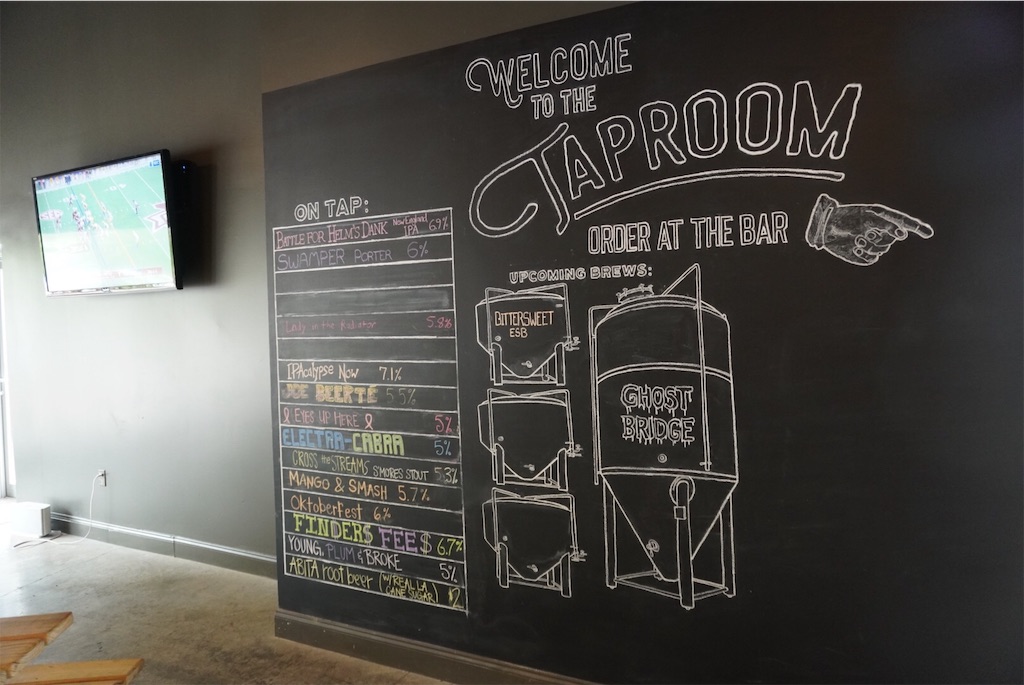 WELCOME
TO THE
TAPROOM
ORDER AT THE BAR
ON TAP:
BATTLE FOR HELM'S DANK NEW ENGLAND IPA 6.9%
SWAMPER PORTER 6%
Lady in the Radiator 5.8%
IPAcalypse Now 7.1%
JOE BEERTÉ 5.5%
EYES UP HERE 5%
ELECTRA-CABRA 5%
CROSS the STREAMS S'MORES STOUT 5.3%
MANGO & SMASH 5.7%
OKtoberFest 6%
FINDERS FEE$ 6.7%
YOUNG, PLUM & BROKE 5%
ABITA root beer (W/REAL LA CANE SUGAR) $2
UPCOMING BREWS:
BITTERSWEET
ESB
GHOST
BRIDGE